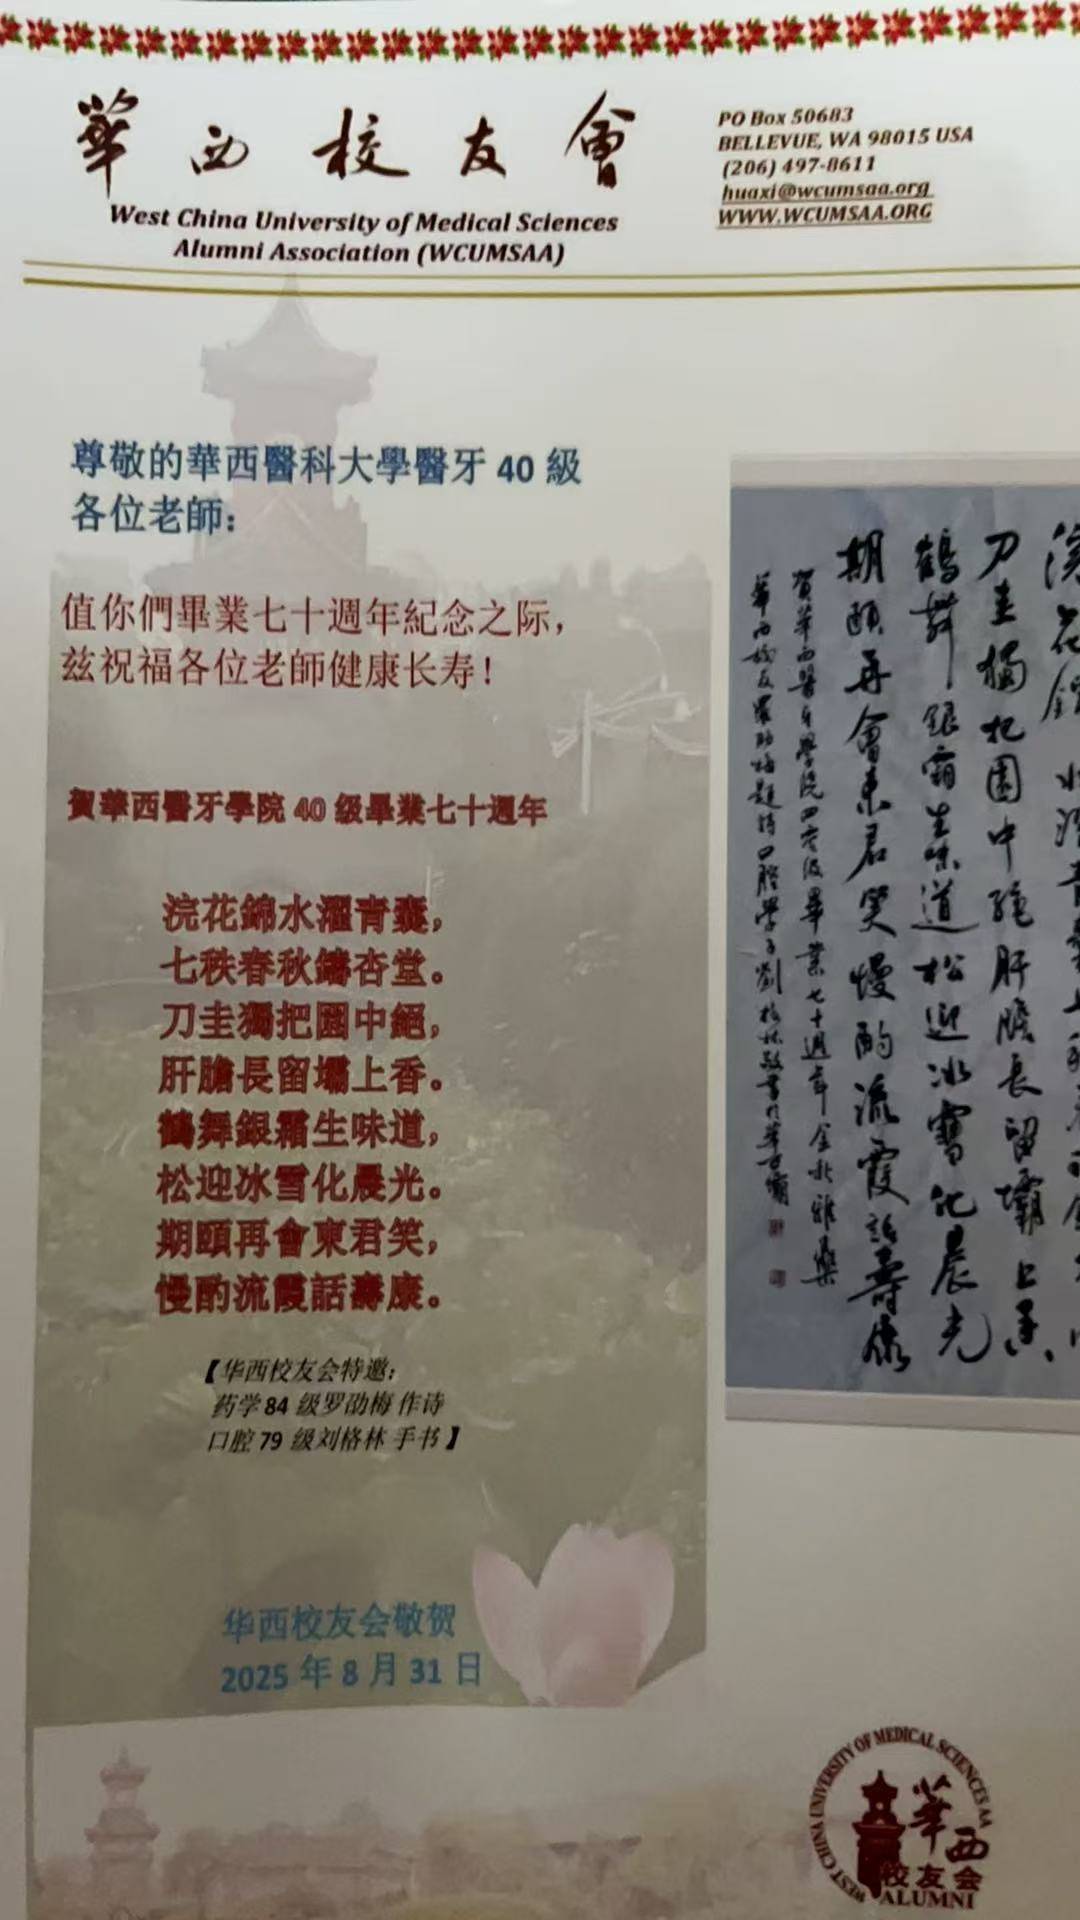 華西校友會
West China University of Medical Sciences
Alumni Association (WCUMSAA)
PO Box 50683
BELLEVUE, WA 98015 USA
(206) 497-8611
huaxi@wcumsaa.org
WWW.WCUMSAA.ORG
尊敬的華西醫科大學醫牙 40 級
各位老師：
值你們畢業七十週年紀念之际，
兹祝福各位老師健康长寿！
賀華西醫牙學院 40 级畢業七十週年
浣花錦水濯青囊，
七秩春秋鑄杏堂。
刀圭獨把園中絕，
肝膽長留壩上香。
鶴舞銀霜生味道，
松迎冰雪化晨光。
期頤再會東君笑，
慢酌流霞話壽康。
【华西校友会特邀：
药学 84 级罗劭梅 作诗
口腔 79 级刘格林 手书】
华西校友会敬贺
2025 年 8 月 31 日
浣花錦水濯青囊七秩
刀圭獨把園中絕肝膽長留壩上香
鶴舞銀霜生味道松迎冰雪化晨光
期頤再會東君笑慢酌流霞話壽康
賀華西醫牙學院四零级畢業七十週年
華西校友羅劭梅題詩口腔學子劉格林敬書於華西壩
WEST CHINA UNIVERSITY OF MEDICAL SCIENCES AA
華西
校友会
ALUMNI